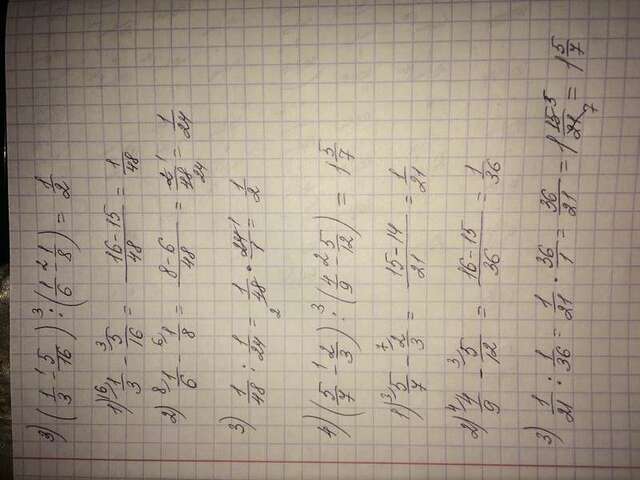 3) (1/3 -¹ 5/16) :³ (1/6 -² 1/8) = 1/2
1) ¹⁶1/3 - ³5/16 = 16-15/48 = 1/48
2) ⁸1/6 - ⁶1/8 = 8-6/48 = 2 1/48 24 = 1/24
3) 1/48 : 1/24 = 1/48 2 · 24 1/1 = 1/2
4) (5/7 -¹ 2/3) :³ (4/9 -² 5/12) = 1 5/7
1) ³5/7 - ⁷2/3 = 15-14/21 = 1/21
2) ⁴4/9 - ³5/12 = 16-15/36 = 1/36
3) 1/21 : 1/36 = 1/21 · 36/1 = 36/21 = 1 15 5/21 7 = 1 5/7